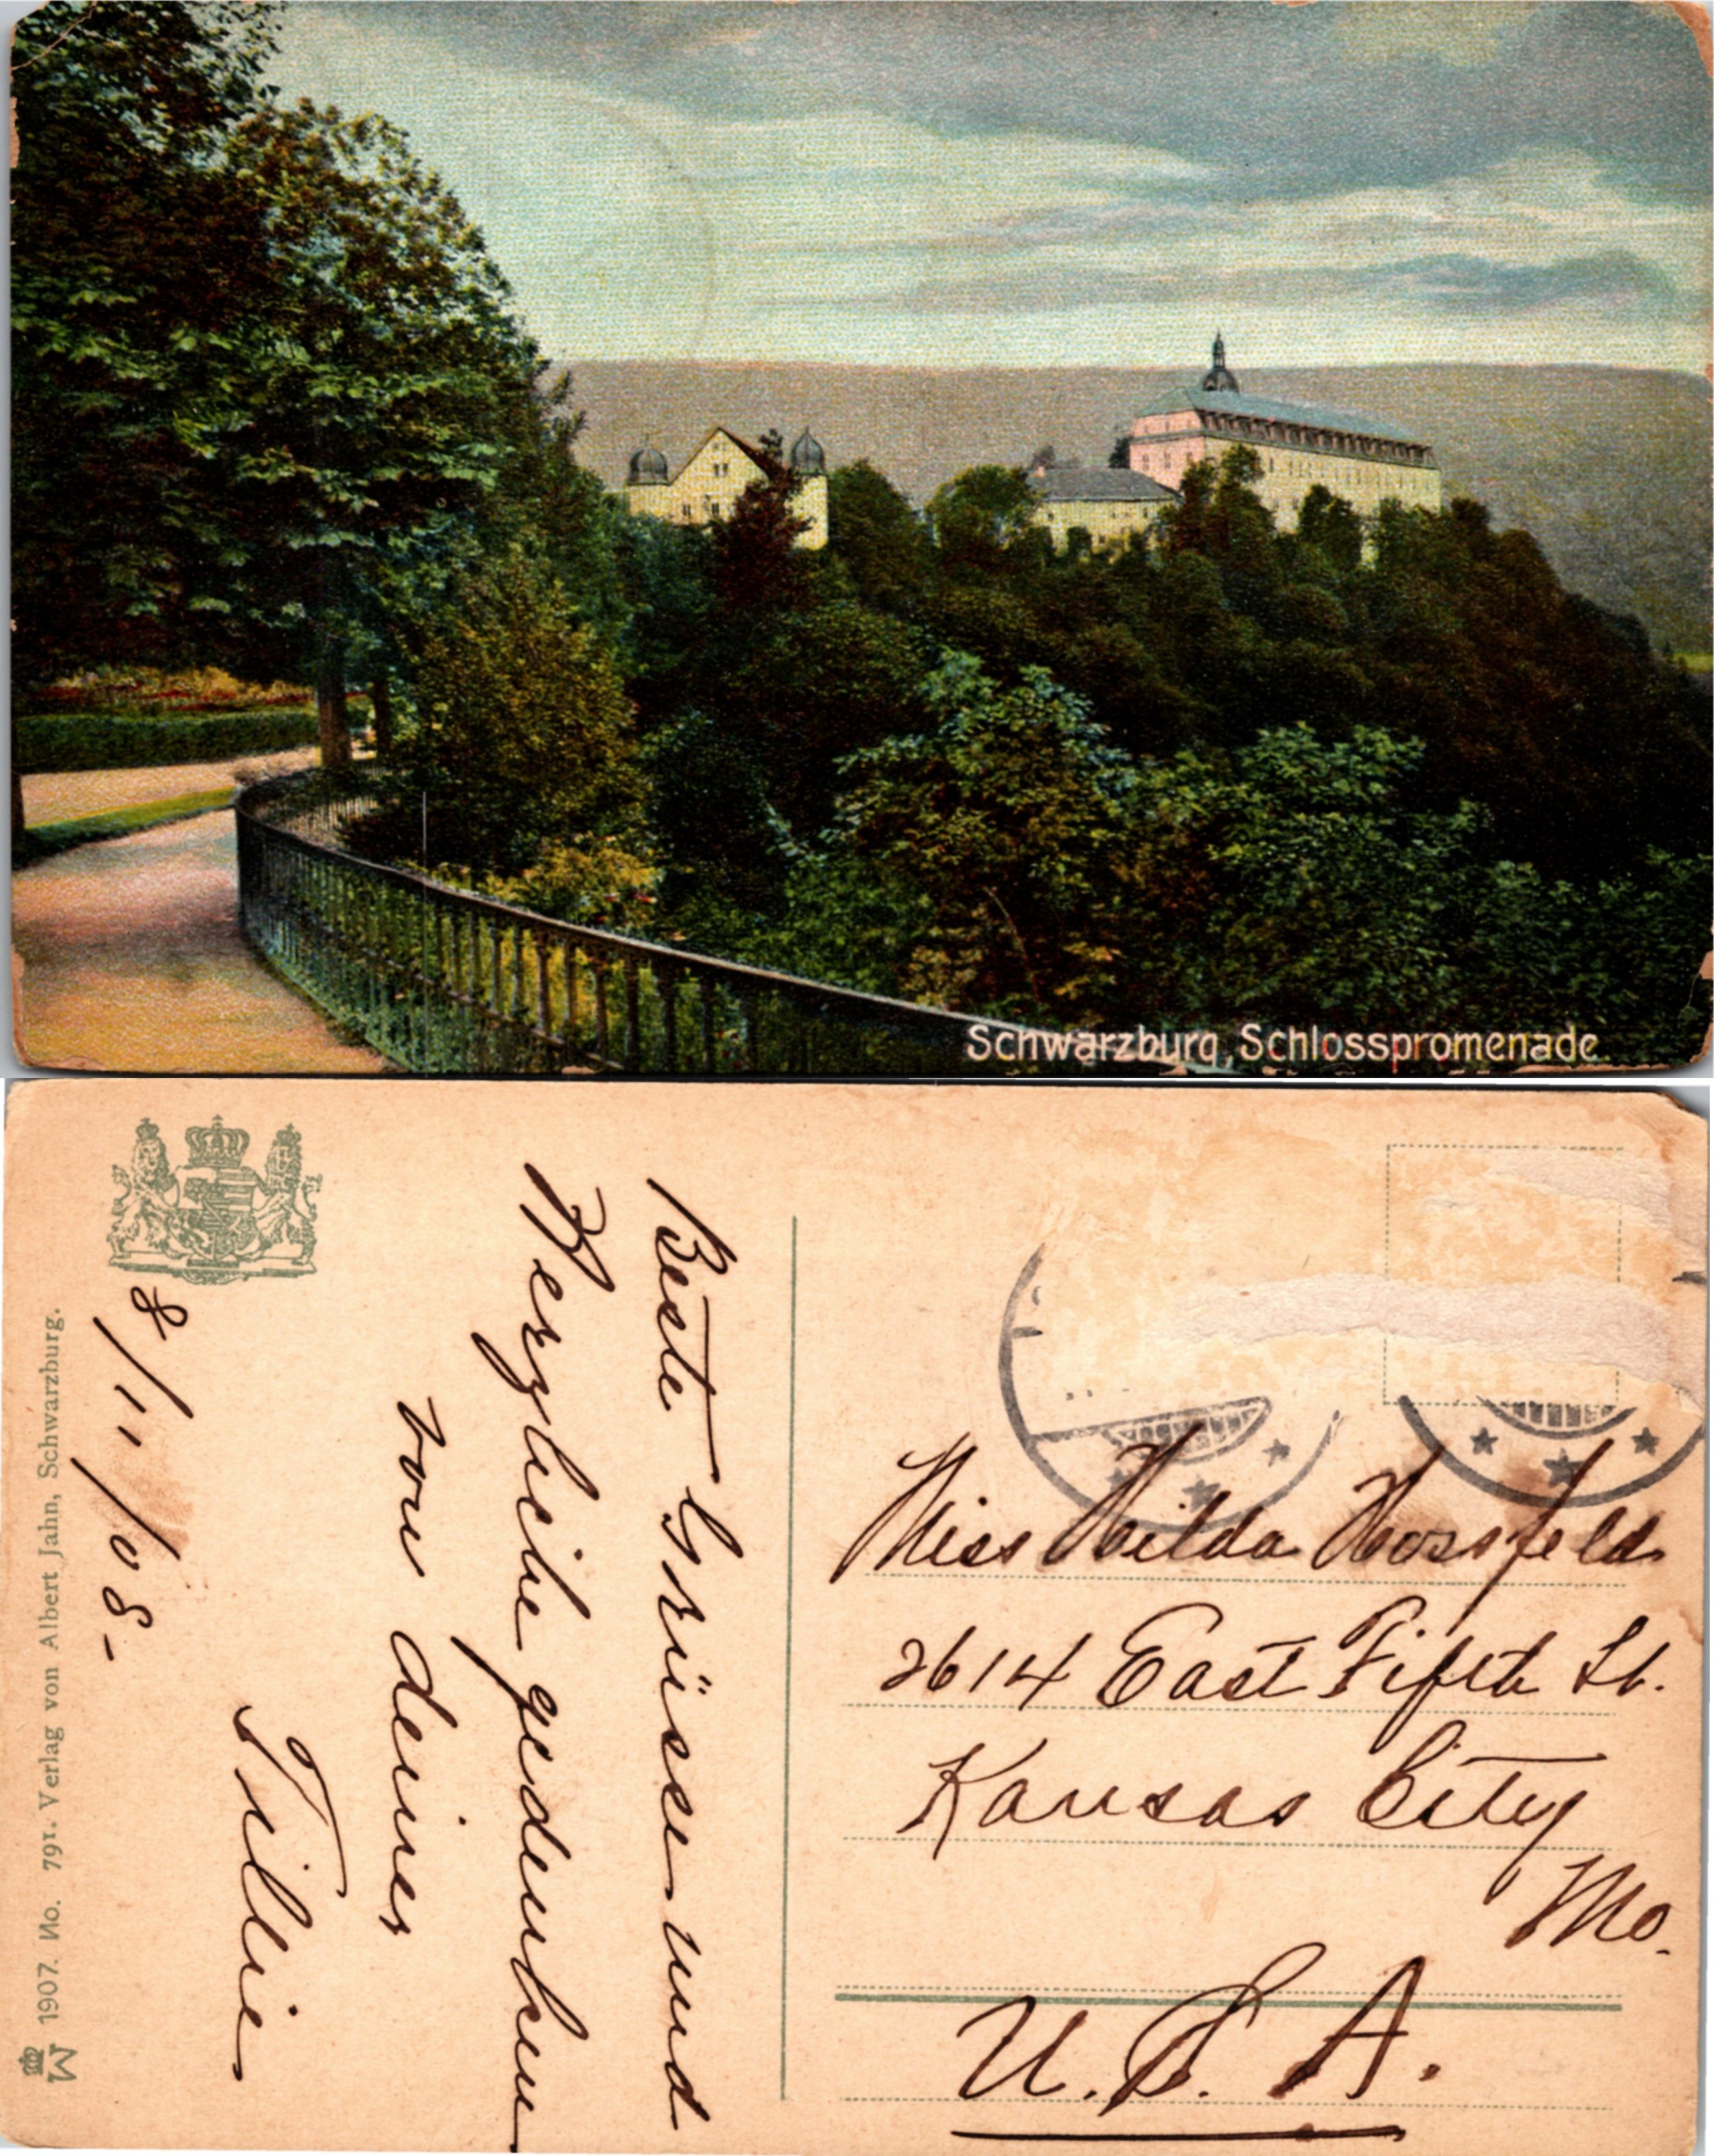 Schwarzburg, Schlosspromenade.
8/11/08-
Beste Grüsse und
Herzliche gedenken
von deiner
Tillie
1907. No. 791. Verlag von Albert Jahn, Schwarzburg.
M
Miss Hilda Hossfeld
2614 East Fifth St.
Kansas City
Mo.
U.S.A.